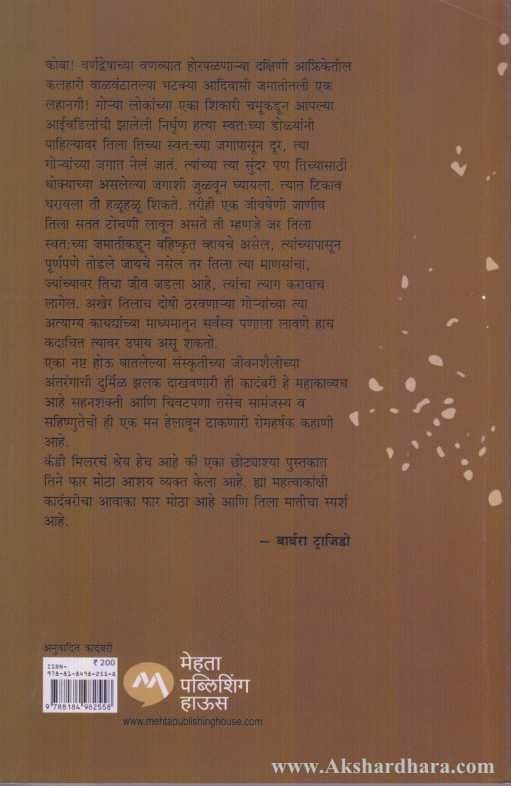 कोबा! वर्णद्वेषाच्या वणव्यात होरपळणाऱ्या दक्षिणी आफ्रिकेतील
कलहारी वाळवंटातल्या भटक्या आदिवासी जमातीतली एक
लहानगी! गोऱ्या लोकांच्या एका शिकारी चमूकडून आपल्या
आईवडिलांची झालेली निर्घृण हत्या स्वत:च्या डोळ्यांनी
पाहिल्यावर तिला तिच्या स्वत:च्या जगापासून दूर, त्या
गोऱ्यांच्या जगात नेलं जातं. त्यांच्या त्या सुंदर पण तिच्यासाठी
धोक्याच्या असलेल्या जगाशी जुळवून घ्यायला. त्यात टिकाव
धरायला ती हळूहळू शिकते. तरीही एक जीवघेणी जाणीव
तिला सतत टोचणी लावून असते ती म्हणजे जर तिला
स्वत:च्या जमातीकडून बहिष्कृत व्हायचे असेल, त्यांच्यापासून
पूर्णपणे तोडले जायचे नसेल तर तिला त्या माणसांचा,
ज्यांच्यावर तिचा जीव जडला आहे, त्यांचा त्याग करावाच
लागेल. अखेर तिलाच दोषी ठरवणाऱ्या गोऱ्यांच्या त्या
अत्याग्य कायद्यांच्या माध्यमातून सर्वस्व पणाला लावणे हाच
कदाचित त्यावर उपाय असू शकतो.
एका नष्ट होऊ घातलेल्या संस्कृतीच्या जीवनशैलीच्या
अंतरंगाची दुर्मिळ झलक दाखवणारी ही कादंबरी हे महाकाव्यच
आहे सहनशक्ती आणि चिवटपणा तसेच सामंजस्य व
सहिष्णुतेची ही एक मन हेलावून टाकणारी रोमहर्षक कहाणी
आहे.
कँडी मिलरचं श्रेय हेच आहे की एका छोट्याश्या पुस्तकात
तिने फार मोठा आशय व्यक्त केला आहे. ह्या महत्वाकांक्षी
कादंबरीचा आवाका फार मोठा आहे आणि तिला मातीचा स्पर्श
आहे.
– बार्बरा ट्राजिडो
अनुवादित कादंबरी
ISBN- ₹ 200
978-81-8498-255-8
9 788184 982558
मेहता
पब्लिशिंग
हाऊस
www.mehtapublishinghouse.com
www.Akshardhara.com